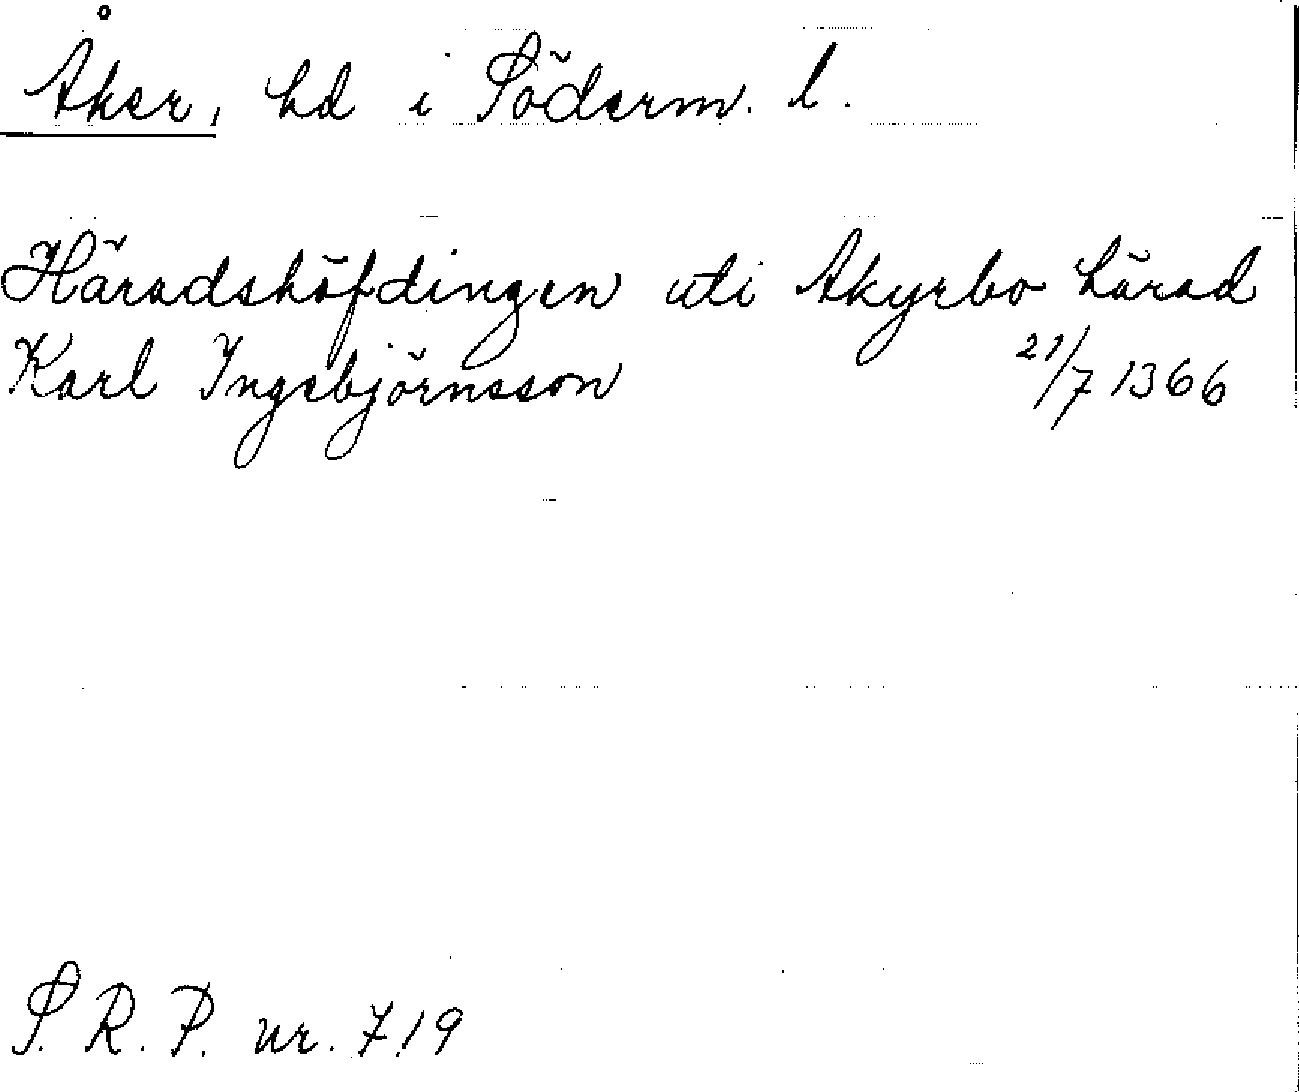 Åker, hd i Söderm. l.
Häradshöfdingen uti Akyrbo härad
Karl Ingebjörnsson 21/7 1366
S. R. P. nr. 719